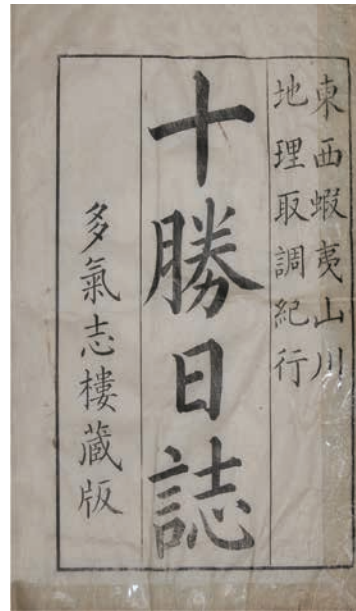 東西蝦夷山川
地理取調紀行
十勝日誌
多氣志樓蔵版